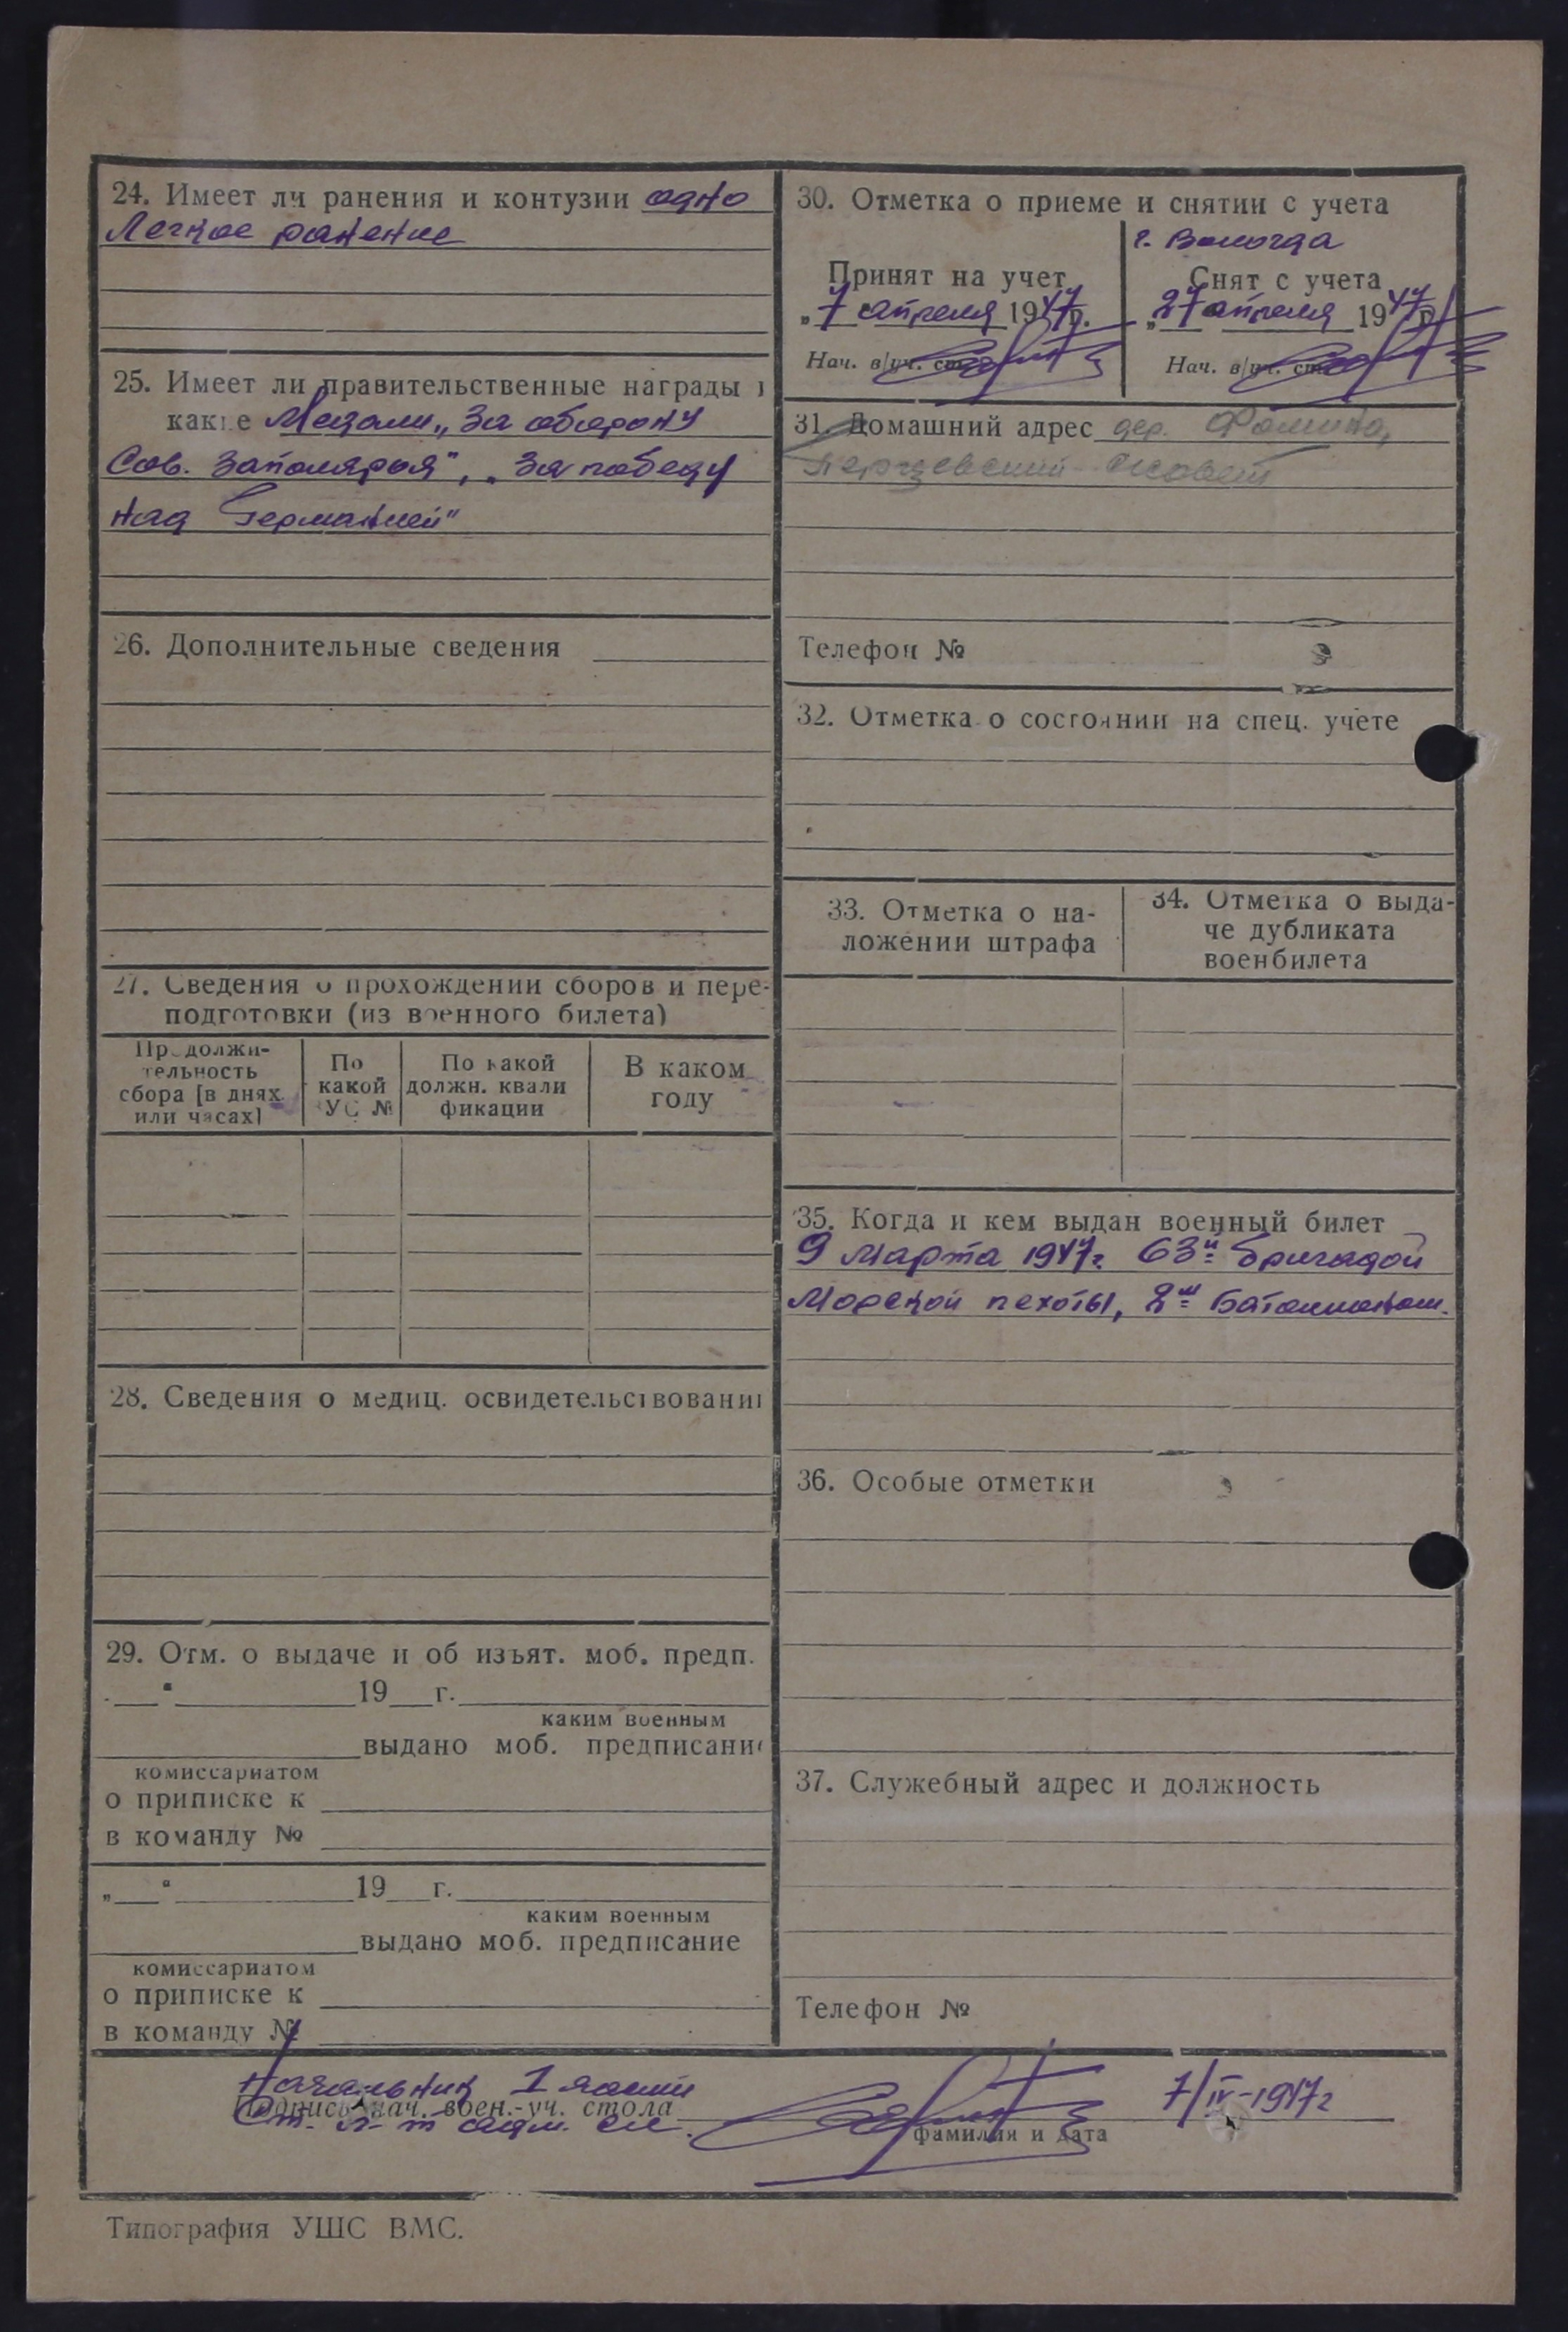 24. Имеет ли ранения и контузии одно
Легкое ранение
25. Имеет ли правительственные награды и
какие Медали „За оборону
Сов. Заполярья", „За победу
над Германией"
26. Дополнительные сведения
27. Сведения о прохождении сборов и пере-
подготовки (из военного билета)
Продолжи-
тельность
сбора [в днях
или часах]
По
какой
ВУС №
По какой
должн. квали
фикации
В каком
году
28. Сведения о медиц. освидетельствовании
29. Отм. о выдаче и об изъят. моб. предп.
„ “ 19 г.
каким военным
выдано моб. предписание
комиссариатом
о приписке к
в команду №
„ “ 19 г.
каким военным
выдано моб. предписание
комиссариатом
о приписке к
в команду №
30. Отметка о приеме и снятии с учета
г. Вологда
Принят на учет
„7 апреля 1947г.
Нач. в/уч. ст.
Снят с учета
„27 апреля 1947г.
Нач. в/уч. ст.
31. Домашний адрес дер. Фомино,
с/совет
Телефон №
32. Отметка о состоянии на спец. учете
33. Отметка о на-
ложении штрафа
34. Отметка о выда-
че дубликата
военбилета
35. Когда и кем выдан военный билет
9 марта 1947г. 63й бригадой
Морской пехоты, 2м Батальоном.
36. Особые отметки
37. Служебный адрес и должность
Телефон №
Начальник 1 части
Подпись нач. воен.-уч. стола
Ст. л-т адм. сл. 7/IV-1947г
фамилия и дата
Типография УШС ВМС.